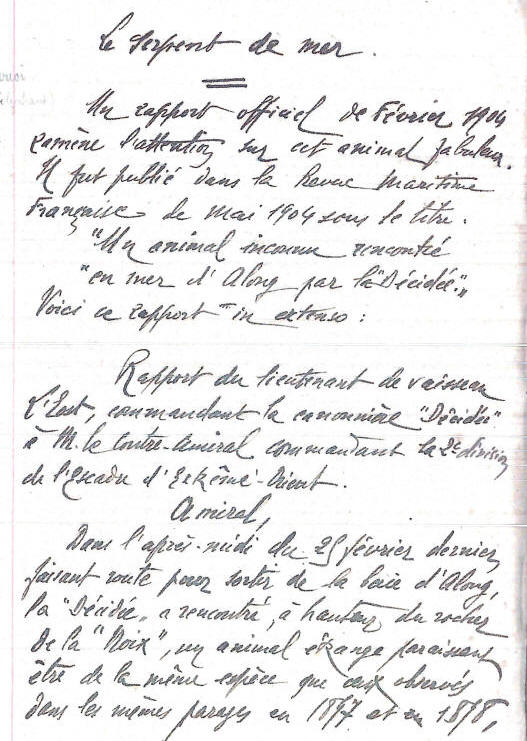 Le Serpent de mer.
Un rapport officiel de Février 1904
ramène l'attention sur cet animal fabuleux.
Il fut publié dans la Revue Maritime
Française de Mai 1904 sous le titre.
"Un animal inconnu rencontré
"en mer d'Along par la "Décidée".„
Voici ce rapport "in extenso :
Rapport du lieutenant de vaisseau
L'Eost, commandant la canonnière "Décidée"
à M. le Contre-Amiral commandant la 2e division
de l'Escadre d'Extrême-Orient.
Amiral,
Dans l'après-midi du 25 février dernier,
faisant route pour sortir de la baie d'Along,
la "Décidée„ a rencontré, à hauteur du rocher
de la "Noix", un animal étrange paraissant
être de la même espèce que ceux observés
dans les mêmes parages en 1897 et en 1898,